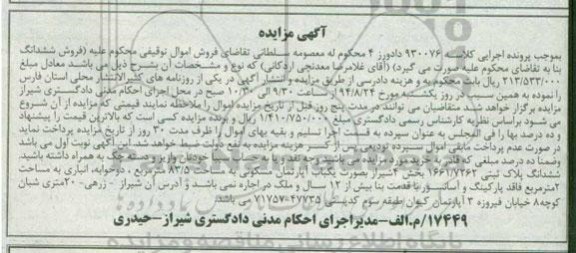 آگهی مزایده
بموجب پرونده اجرایی کلاسه ۹۳۰۰۷۶ دادورز ۴ محکوم له معصومه سلطانی تقاضای فروش اموال توقیفی محکوم علیه (فروش ششدانگ
بنا به تقاضای محکوم علیه صورت می گیرد) (آقای غلامرضا معدنچی اردکانی) که نوع و مشخصات آن بشرح ذیل می باشد معادل مبلغ
۲۱۳/۵۳۳/۰۰۰ ریال بابت محکوم به و هزینه دادرسی از طریق مزایده انتشار آگهی در یکی از روزنامه های کثیرالانتشار محلی استان فارس
را نموده به همین سبب در روز یکشنبه مورخ ۹۴/۸/۲۴ از ساعت ۹/۳۰ الی ۱۰/۳۰ صبح در محل اجرای احکام مدنی دادگستری شیراز
مزایده برگزار خواهد شد. متقاضیان می توانند در مدت پنج روز قبل از تاریخ مزایده اموال را ملاحظه نمایند قیمتی که مزایده از آن شروع
می شود براساس نظریه کارشناس رسمی دادگستری مبلغ ۱/۴۱۰/۷۵۰/۰۰۰ ریال و برنده مزایده کسی است که بالاترین قیمت را پیشنهاد
و ده درصد بها را فی المجلس به عنوان سپرده به قسمت اجرا تسلیم و بقیه بهای اموال را ظرف مدت ۳۰ روز از تاریخ مزایده پرداخت نماید
در صورت عدم پرداخت مابقی اموال سپرده تودیعی پس از کسر هزینه مزایده به نفع دولت ضبط خواهد شد. این آگهی نوبت اول می باشد
وضمنا ده درصد مبلغی که قادر به خرید مورد مزایده
ششدانگ پلاک ثبتی ۱۶۶۱/۷۲۶۲ بخش ۴ شیراز بصورت یکباب آپارتمان مسکونی به مساحت ۸۳/۵ مترمربع ، دوخوابه، انباری به مساحت
۲مترمربع فاقد پارکینگ و آسانسور با قدمت بنا بیش از ۱۲ سال و ملک در اجاره نمی باشد و آدرس آن شیراز - زرهی- ۲۰متری شبان
کوچه ۸ خیابان فیروزه ۳ آپارتمان کیوان طبقه سوم کدپستی ۴۷۷۳۵-۷۱۷۵۷ می باشد
۱۷۴۴۹/م.الف-مدیراجرای احکام مدنی دادگستری شیراز-حیدری